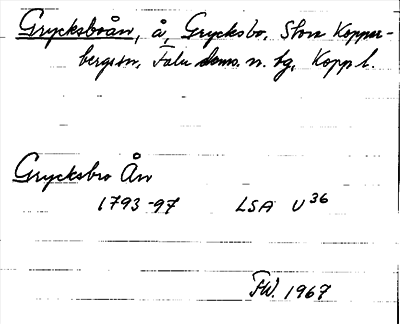 Grycksboån, å, Grycksbo, Stora Kopper-
bergs sn, Falu doms. n. tg, Kopp l.
Grycksbro Ån
1793-97 LSA U 36
FW. 1967